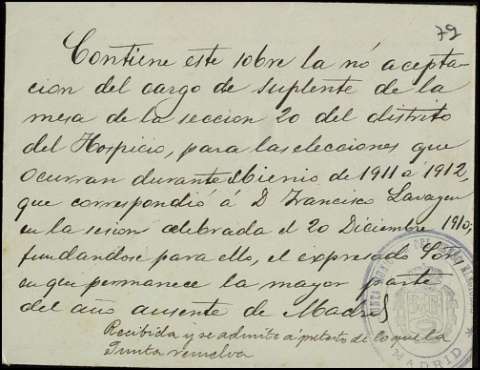 79
Contiene este sobre la nó acepta-
cion del cargo de suplente de la
mesa de la seccion 20 del distrito
del Hospicio, para las elecciones que
ocurran durante el bienio de 1911 á 1912,
que correspondió á D Francisco
en la sesion celebrada el 20 Diciembre 1910,
fundandose para ello, el expresado Sor
en que permanece la mayor parte
del año ausente de Madrid
Recibida y se admite á de lo que la
Junta resuelva
MADRID